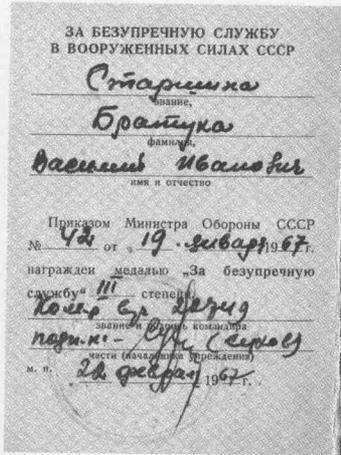 ЗА БЕЗУПРЕЧНУЮ СЛУЖБУ
В ВООРУЖЕННЫХ СИЛАХ СССР
Старшина
звание,
Братука
фамилия,
Василий Иванович
имя и отчество
Приказом Министра Обороны СССР
№ 42 от „19 января 1967 г.
награжден медалью „За безупречную
службу" III степени.
звание и подпись командира
части (начальника учреждения)
м. п. „22 февраля 1967 г.